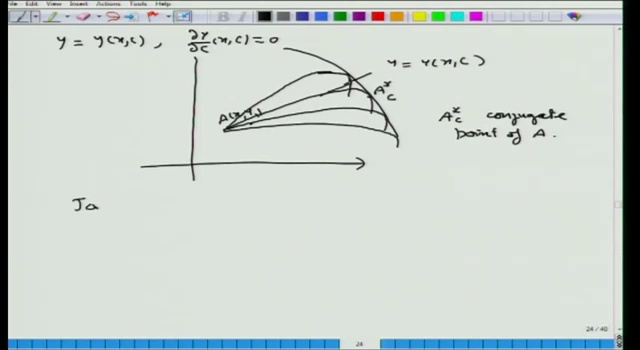 File View Insert Actions Tools Help
y = y(x,c) , ∂Y/∂c (x,c) = 0
y = Y(x,c)
A*c
A*c conjugate
point of A.
Ja
24 / 40
24